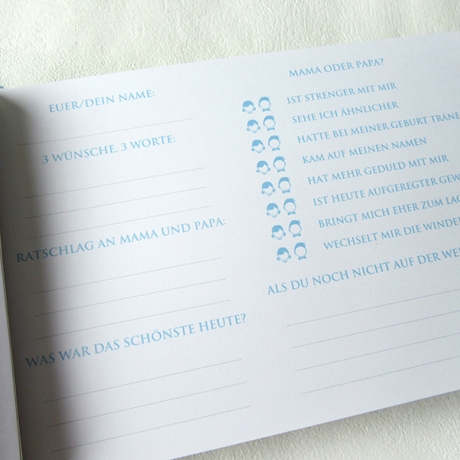 EUER/DEIN NAME:
3 WÜNSCHE, 3 WORTE:
RATSCHLAG AN MAMA UND PAPA:
WAS WAR DAS SCHÖNSTE HEUTE?
MAMA ODER PAPA?
IST STRENGER MIT MIR
SEHE ICH ÄHNLICHER
HATTE BEI MEINER GEBURT
KAM AUF MEINEN NAMEN
HAT MEHR GEDULD MIT MIR
IST HEUTE AUFGEREGTER
BRINGT MICH EHER ZUM
WECHSELT MIR DIE
ALS DU NOCH NICHT AUF DER